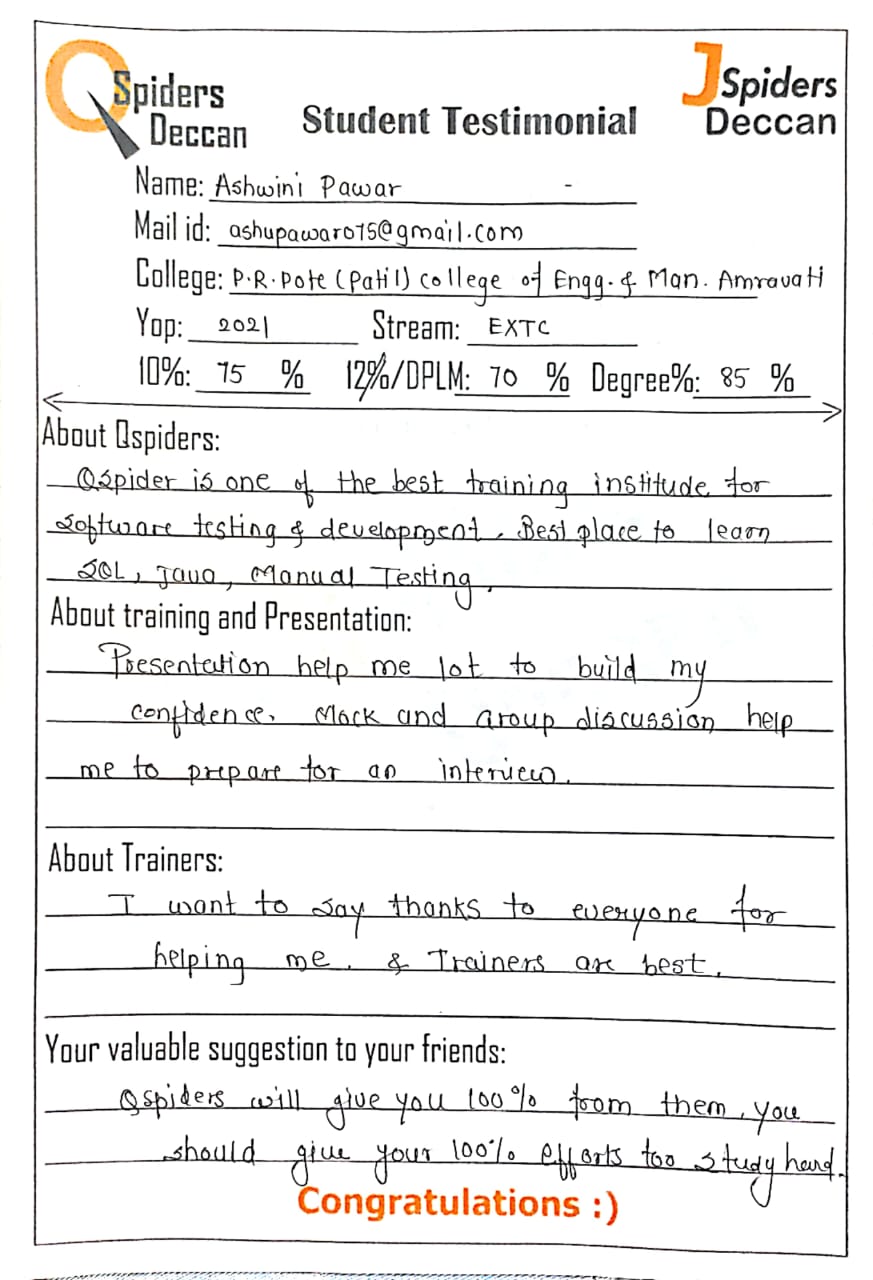 QSpiders
Deccan
Student Testimonial
JSpiders
Deccan
Name: Ashwini Pawar -
Mail id: ashupawar075@gmail.com
College: P.R.Pote (Patil) college of Engg. & Man. Amravati
Yop: 2021 Stream: EXTC
10%: 75 % 12%/DPLM: 70 % Degree%: 85 %
About Qspiders:
QSpider is one of the best training institude for
software testing & development. Best place to learn
SQL, Java, Manual Testing.
About training and Presentation:
Presentation help me lot to build my
confidence. Mock and Group discussion help
me to prepare for an interview.
About Trainers:
I want to say thanks to everyone for
helping me. & Trainers are best.
Your valuable suggestion to your friends:
Qspiders will give you 100% from them, you
should give your 100% efforts too study hard.
Congratulations :)